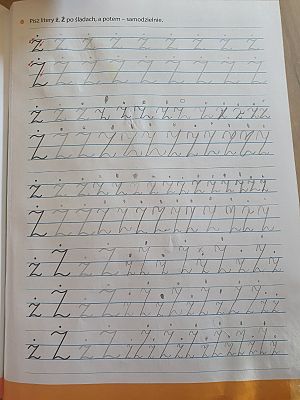 Pisz litery ż, Ż po śladach, a potem – samodzielnie.
ż ż ż ż ż ż ż ż ż
Ż Ż Ż Ż Ż Ż Ż Ż Ż
ż ż ż ż ż ż ż ż ż ż ż ż ż
Ż Ż Ż Ż Ż Ż Ż Ż Ż Ż Ż Ż
ż ż ż ż ż ż ż ż ż ż ż ż ż ż
Ż Ż Ż Ż Ż Ż Ż Ż Ż Ż Ż Ż
ż Ż ż Ż ż Ż ż Ż ż Ż ż Ż
ż Ż ż Ż ż Ż ż Ż ż Ż ż Ż ż Ż
ż Ż ż Ż ż Ż ż Ż ż Ż ż Ż ż Ż